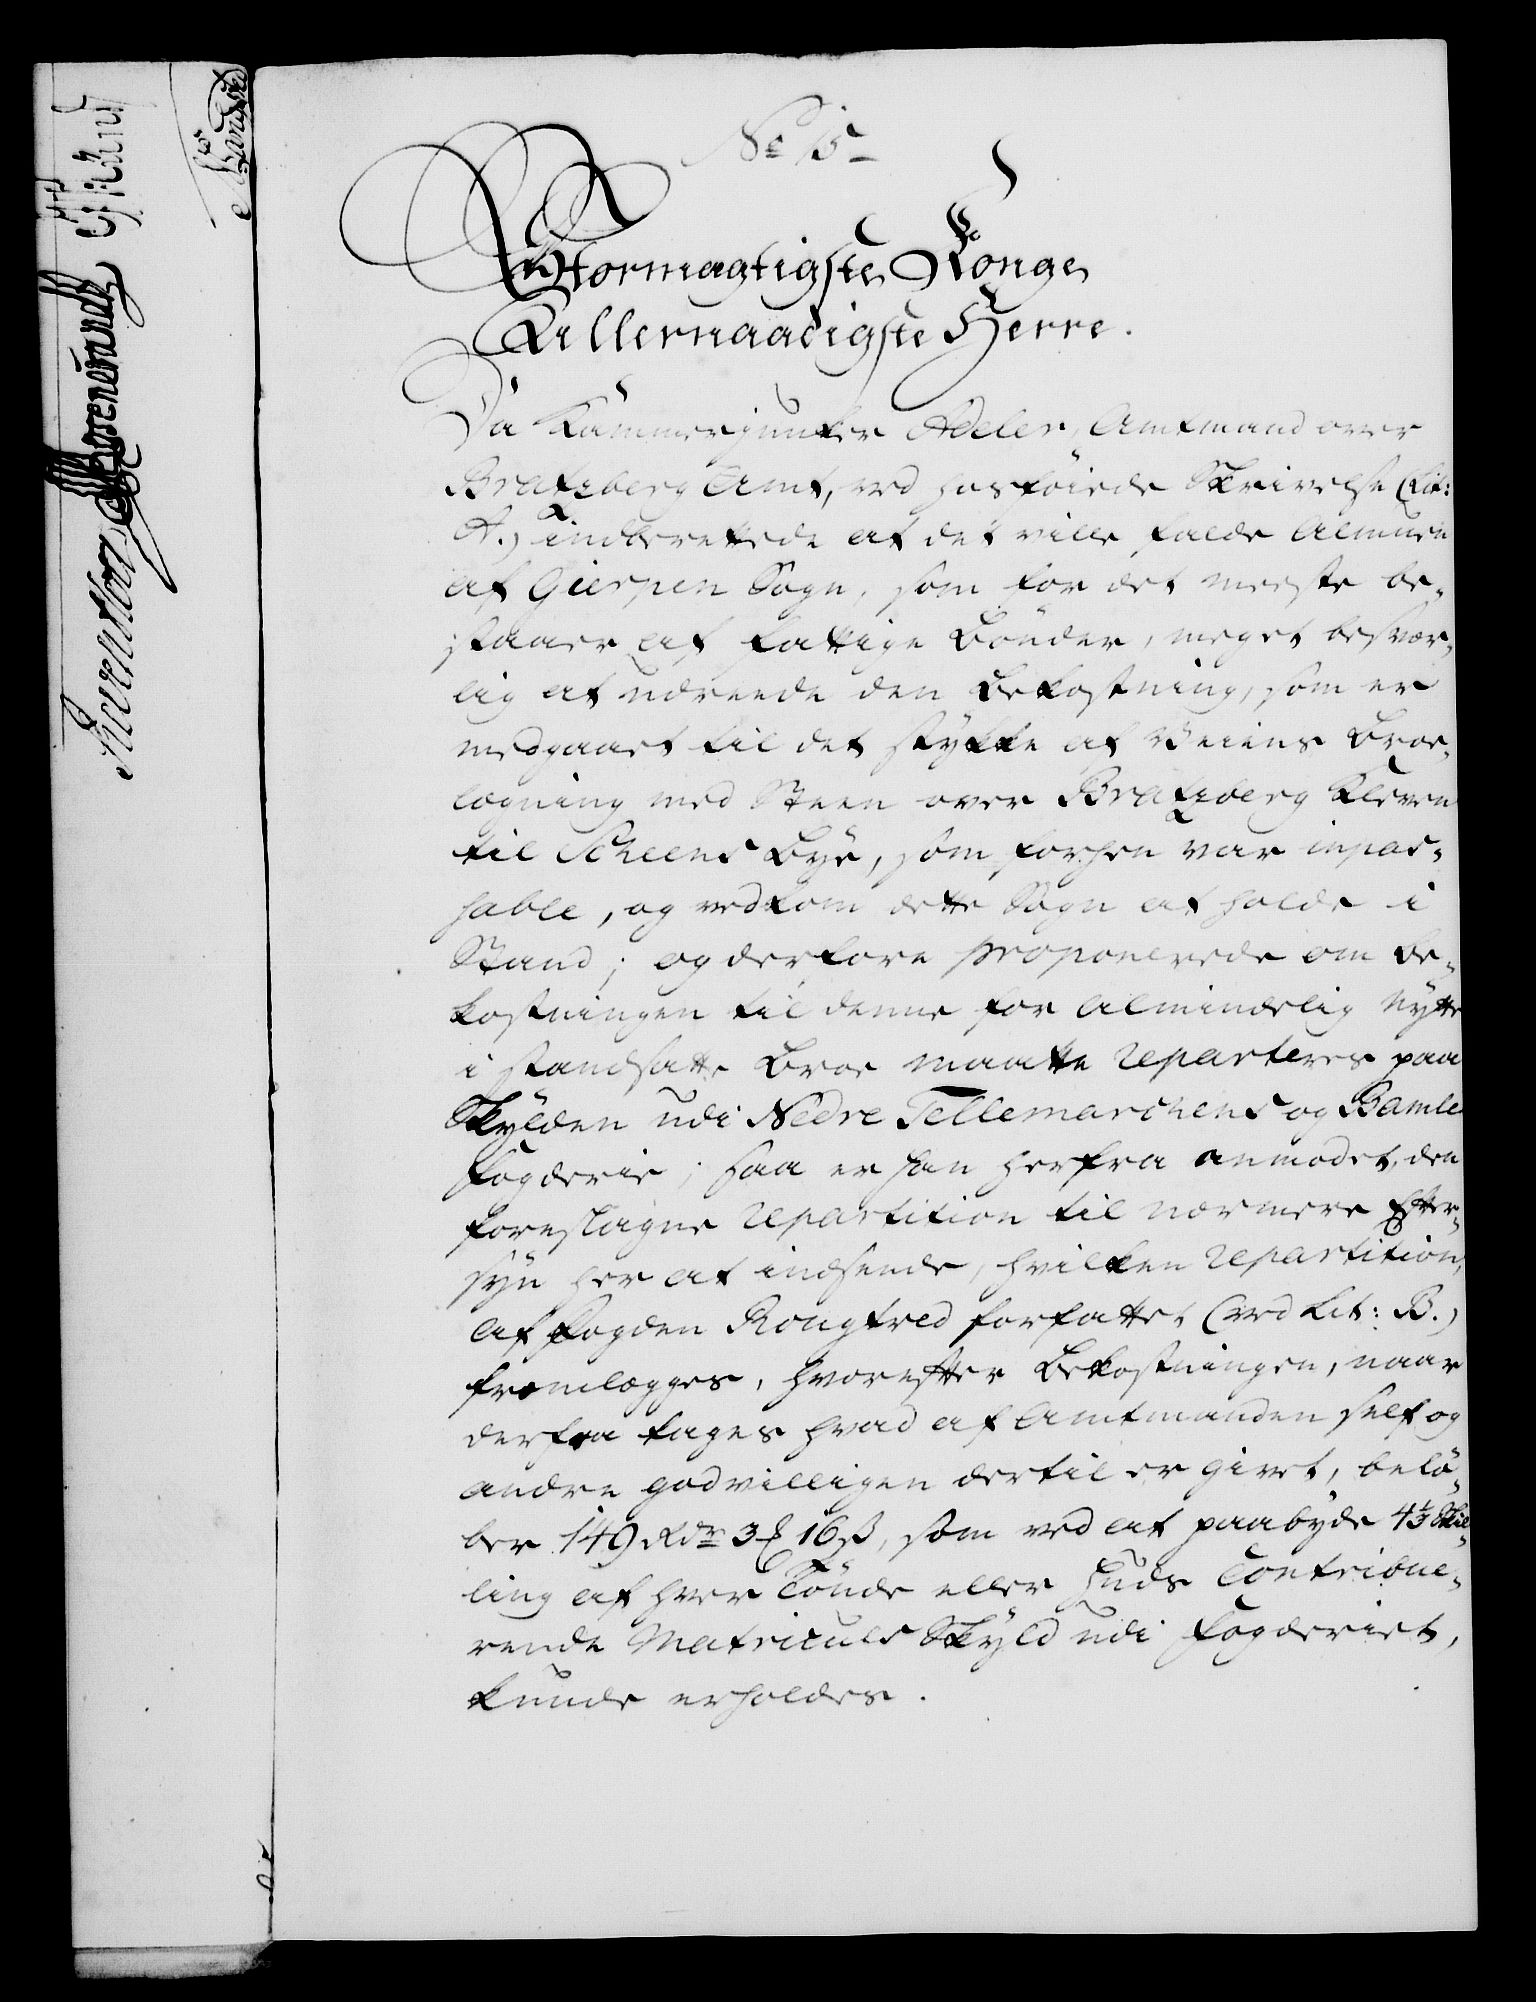 No 15
Stormægtigste Konge
Allernaadigste Herre.
Da Kammerjunker Adeler, Amtmand over
Bratzberg Amt, ved hosföiede Skrivelse (Lit:
A.) indberettede at det ville falde Almuen
af Gierpen Sogn, som for det meeste be-
staaer af fattige Bönder, meget besvær-
lig at udreede den Bekostning, som er
medgaaet til det stykke af Veiens Broe-
lægning med Steen over Bratzberg Kleven
til Scheens Bye, som forhen var inpas-
sable, og vedkom dette Sogn at holde i
Stand; og derfore proponerede om Be-
kostningen til denne for almindelig nytte
i standsatte Broe maatte reparteres paa
Skylden udi Nedre Tellemarchens og Bamle
Fogderie; saa er han herfra anmodet, den
foreslagne repartition til nærmere Efter-
syn her at indsende, hvilken repartition,
af Fogden Rougtved forfattet (ved Lit: B.)
fremlægges, hvorefter Bekostningen, naar
derfra tages hvad af Amtmanden self og
andre godvilligen dertil er givet, belö-
ber 149 Rdr 3 ƒ 16 ß, som ved at paabyde 4⅓ Skil-
ling af hver Tönde eller Huds Contribue-
rende Matriculs Skyld udi Fogderiet,
kunde erholdes.